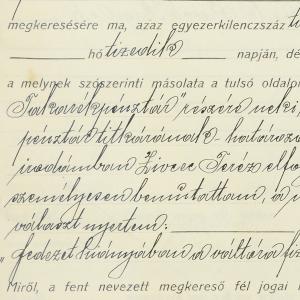 megkeresésére ma, azaz egyezerkilenczszáz
hó tizedik napján, dé
a melynek szószerinti másolata a tulsó oldalo
Takarékpénztár" részére neki,
pénztár titkárának - határozo
irodámban Livere Teréz elfo
személyesen bemutattam, a
választ nyertem:
„fedezet hiányában a váltóra fiz
Miről, a fent nevezett megkereső fél jogai